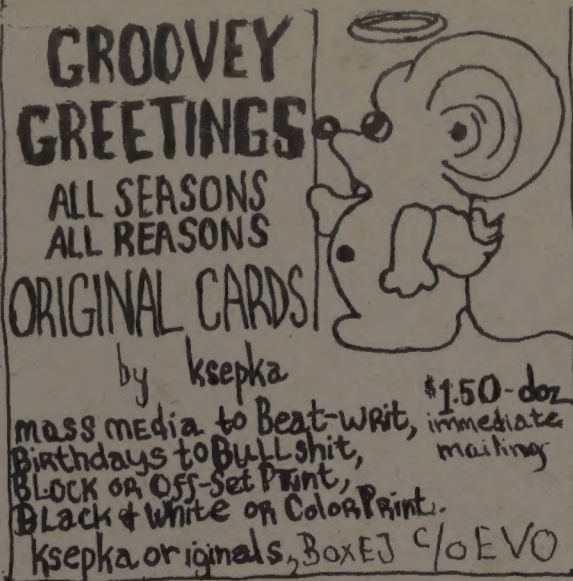 GROOVEY
GREETINGS
ALL SEASONS
ALL REASONS
ORIGINAL CARDS
by ksepka
$1.50-doz
immediate
mailing
mass mEdia to Beat-writ,
Birthdays to BULLshit,
BLOCK OR Off-Set PRint,
BLack & White oR ColoRPRint.
ksepka originals, BoxEJ c/o EVO